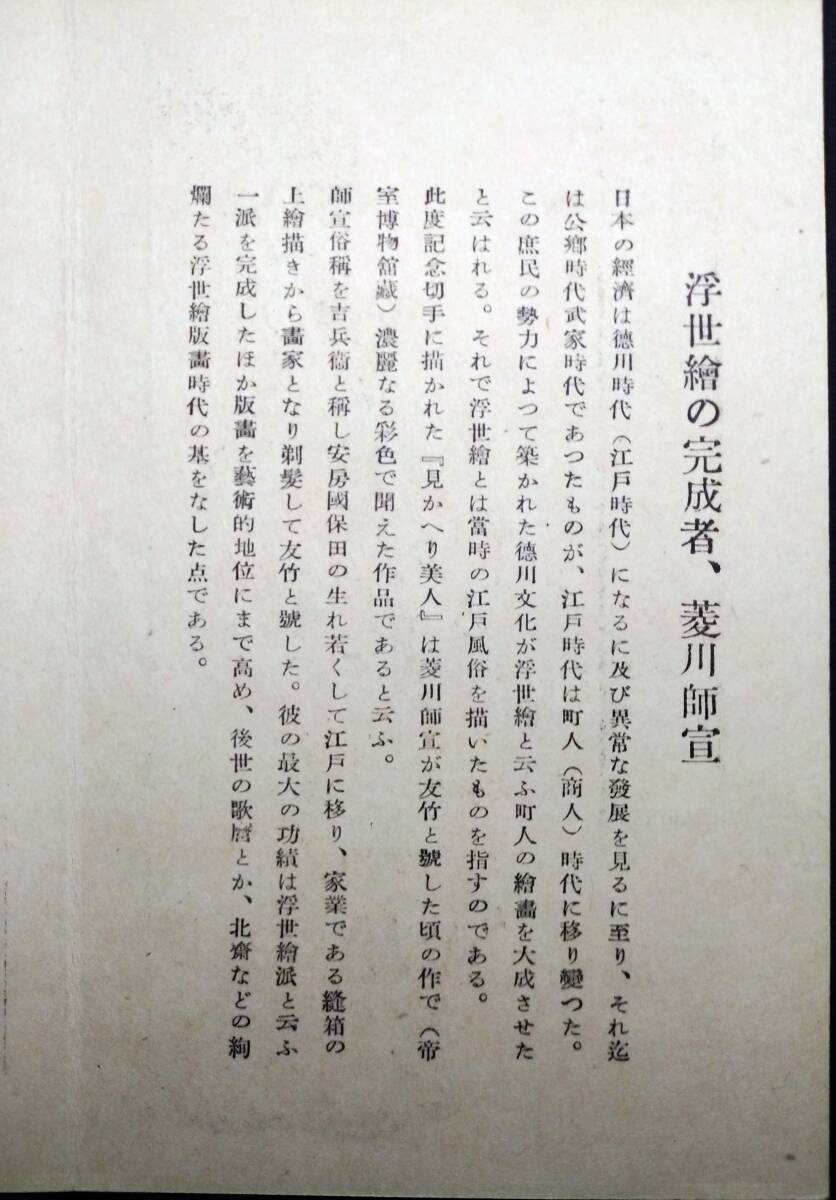 浮世繪の完成者、菱川師宣
日本の經濟は德川時代(江戸時代)になるに及び異常な發展を見るに至り、それ迄
は公鄕時代武家時代であつたものが、江戸時代は町人(商人)時代に移り變つた。
この庶民の勢力によつて築かれた德川文化が浮世繪と云ふ町人の繪畫を大成させた
と云はれる。それで浮世繪とは當時の江戸風俗を描いたものを指すのである。
此度記念切手に描かれた『見かへり美人』は菱川師宣が友竹と號した頃の作で(帝
室博物舘藏)濃麗なる彩色で聞えた作品であると云ふ。
師宣俗稱を吉兵衞と稱し安房國保田の生れ若くして江戸に移り、家業である縫箱の
上繪描きから畫家となり剃髮して友竹と號した。彼の最大の功績は浮世繪派と云ふ
一派を完成したほか版畫を藝術的地位にまで高め、後世の歌麿とか、北齋などの絢
爛たる浮世繪版畫時代の基をなした点である。